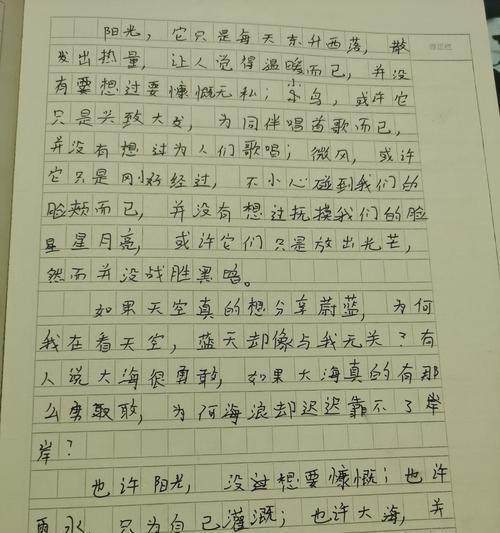 阳光，它只是每天东升西落，散
发出热量，让人觉得温暖而已，并没
有要想过要慷慨无私；小鸟，或许它
只是兴致大发，为同伴唱首歌而已，
并没有想过为人们歌唱；微风，或许
它只是刚好经过，不小心碰到我们的
脸颊而已，并没有想过抚摸我们的脸
星星月亮，或许它们只是放出光芒，
然而并没战胜黑暗。
如果天空真的想分享蔚蓝，为何
我在看天空，蓝天却像与我无关？有
人说大海很勇敢，如果大海真的有那
么勇敢敢，为何海浪却迟迟靠不了岸
岸？
也许阳光，没过想要慷慨；也许
雨水，只为自己灌溉；也许大海，并